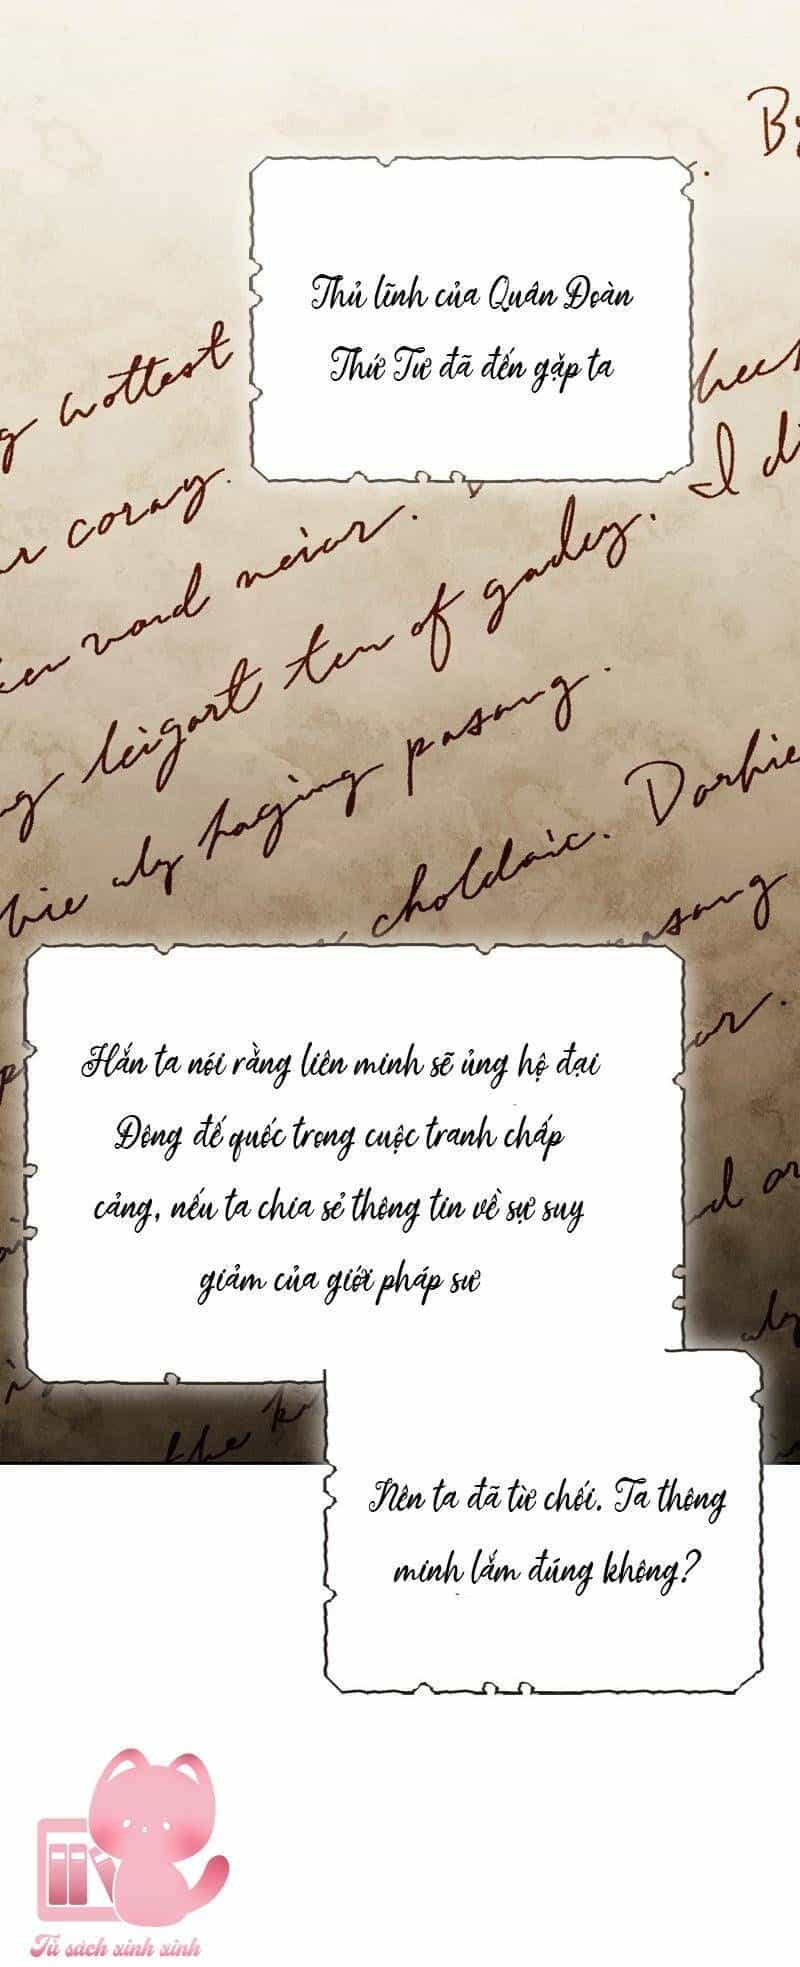 By
Thủ lĩnh của Quân Đoàn
Thứ Tư đã đến gặp ta
wottest
coray.
word neior.
I di
leigart ten of gadey.
aly haging pasang.
choldaic. Darhie
pasang
Hắn ta nói rằng liên minh sẽ ủng hộ đại
Đông đế quốc trong cuộc tranh chấp
cảng, nếu ta chia sẻ thông tin về sự suy
giảm của giới pháp sư
the
Nên ta đã từ chối. Ta thông
minh lắm đúng không?
Tủ sách xinh xinh